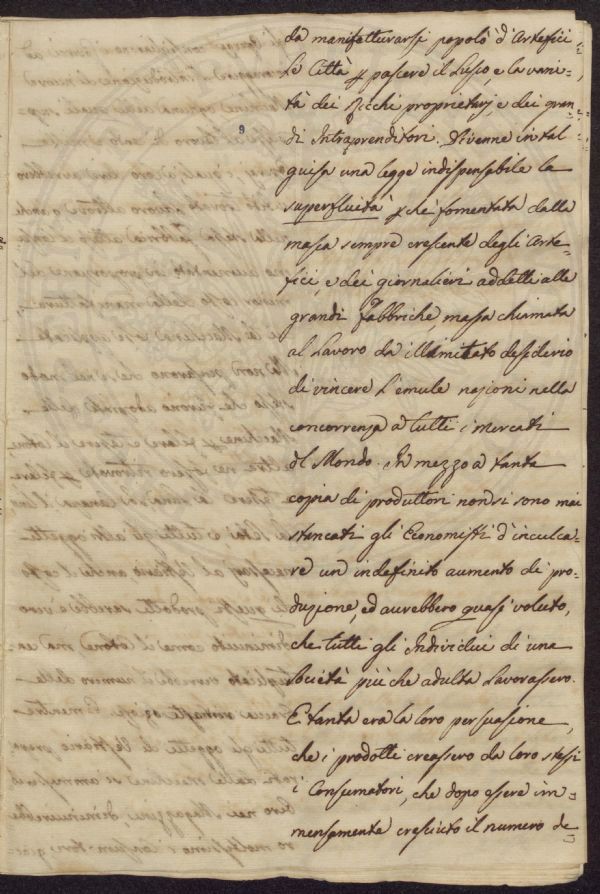 9
da manifatturarsi popolò d'Artefici
Le Città p pascere il Lusso, e la vani-
tà dei ricchi proprietarj, e dei gran-
di Intraprenditori. Divenne in tal
guisa una legge indispensabile la
superfluità pchè fomentata dalla
massa sempre crescente degli Arte-
fici, e dei giornalieri addetti alle
grandi fabbriche massa chiamata
al Lavoro da illimitato desiderio
di vincere L'emule nazioni nella
concorrenza a tutti i mercati
del Mondo. In mezzo a tanta
copia di produttori non si sono mai
stancati gli Economisti d'inculca-
re un indefinito aumento di pro-
duzione, ed avrebbero quasi voluto,
che tutti gli Individui di una
società più che adulta Lavorassero.
E tanta era la loro persuasione,
che i prodotti creassero da loro stessi
i Consumatori, che dopo essere im-
mensamente cresciuto il numero de